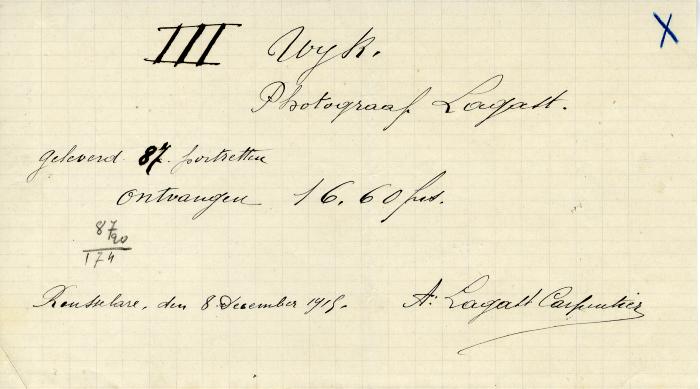 III Wyk.
Photograaf Lagast.
geleverd 87 portretten
ontvangen 16.60 frs.
87
20
174
Rousselare, den 8 December 1915.
A. Lagast Carpentier
X